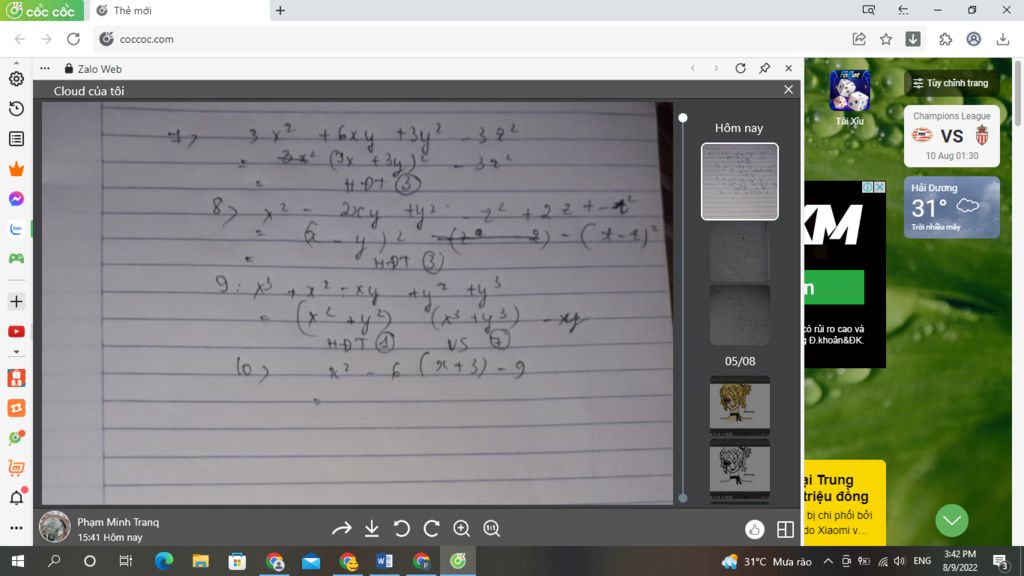 cốc cốc
Thẻ mới
coccoc.com
Zalo Web
Cloud của tôi
7) 3x² + 6xy + 3y² - 3z²
= (3x + 3y)² - 3z²
= HĐT ③
8) x² - 2xy + y² - z² + 2z
= (x - y)² - (t - z)²
= HĐT ③
9: x³ + x² - xy + y² + y³
= (x² + y²) (x³ + y³) - xy
HĐT ① VS ⑦
10) x² - 6 (x + 3) - 9
=
Hôm nay
05/08
Phạm Minh Trang
15:41 Hôm nay
1:1
FaBet
Tài Xỉu
Tùy chỉnh trang
Champions League
PSV
VS
10 Aug 01:30
Hải Dương
31°
Trời nhiều mây
XM
có rủi ro cao và
g Đ.khoản&ĐK.
ại Trung
triệu đồng
bị chi phối bởi
do Xiaomi v...
31°C Mưa rào
ENG
3:42 PM
8/9/2022
3